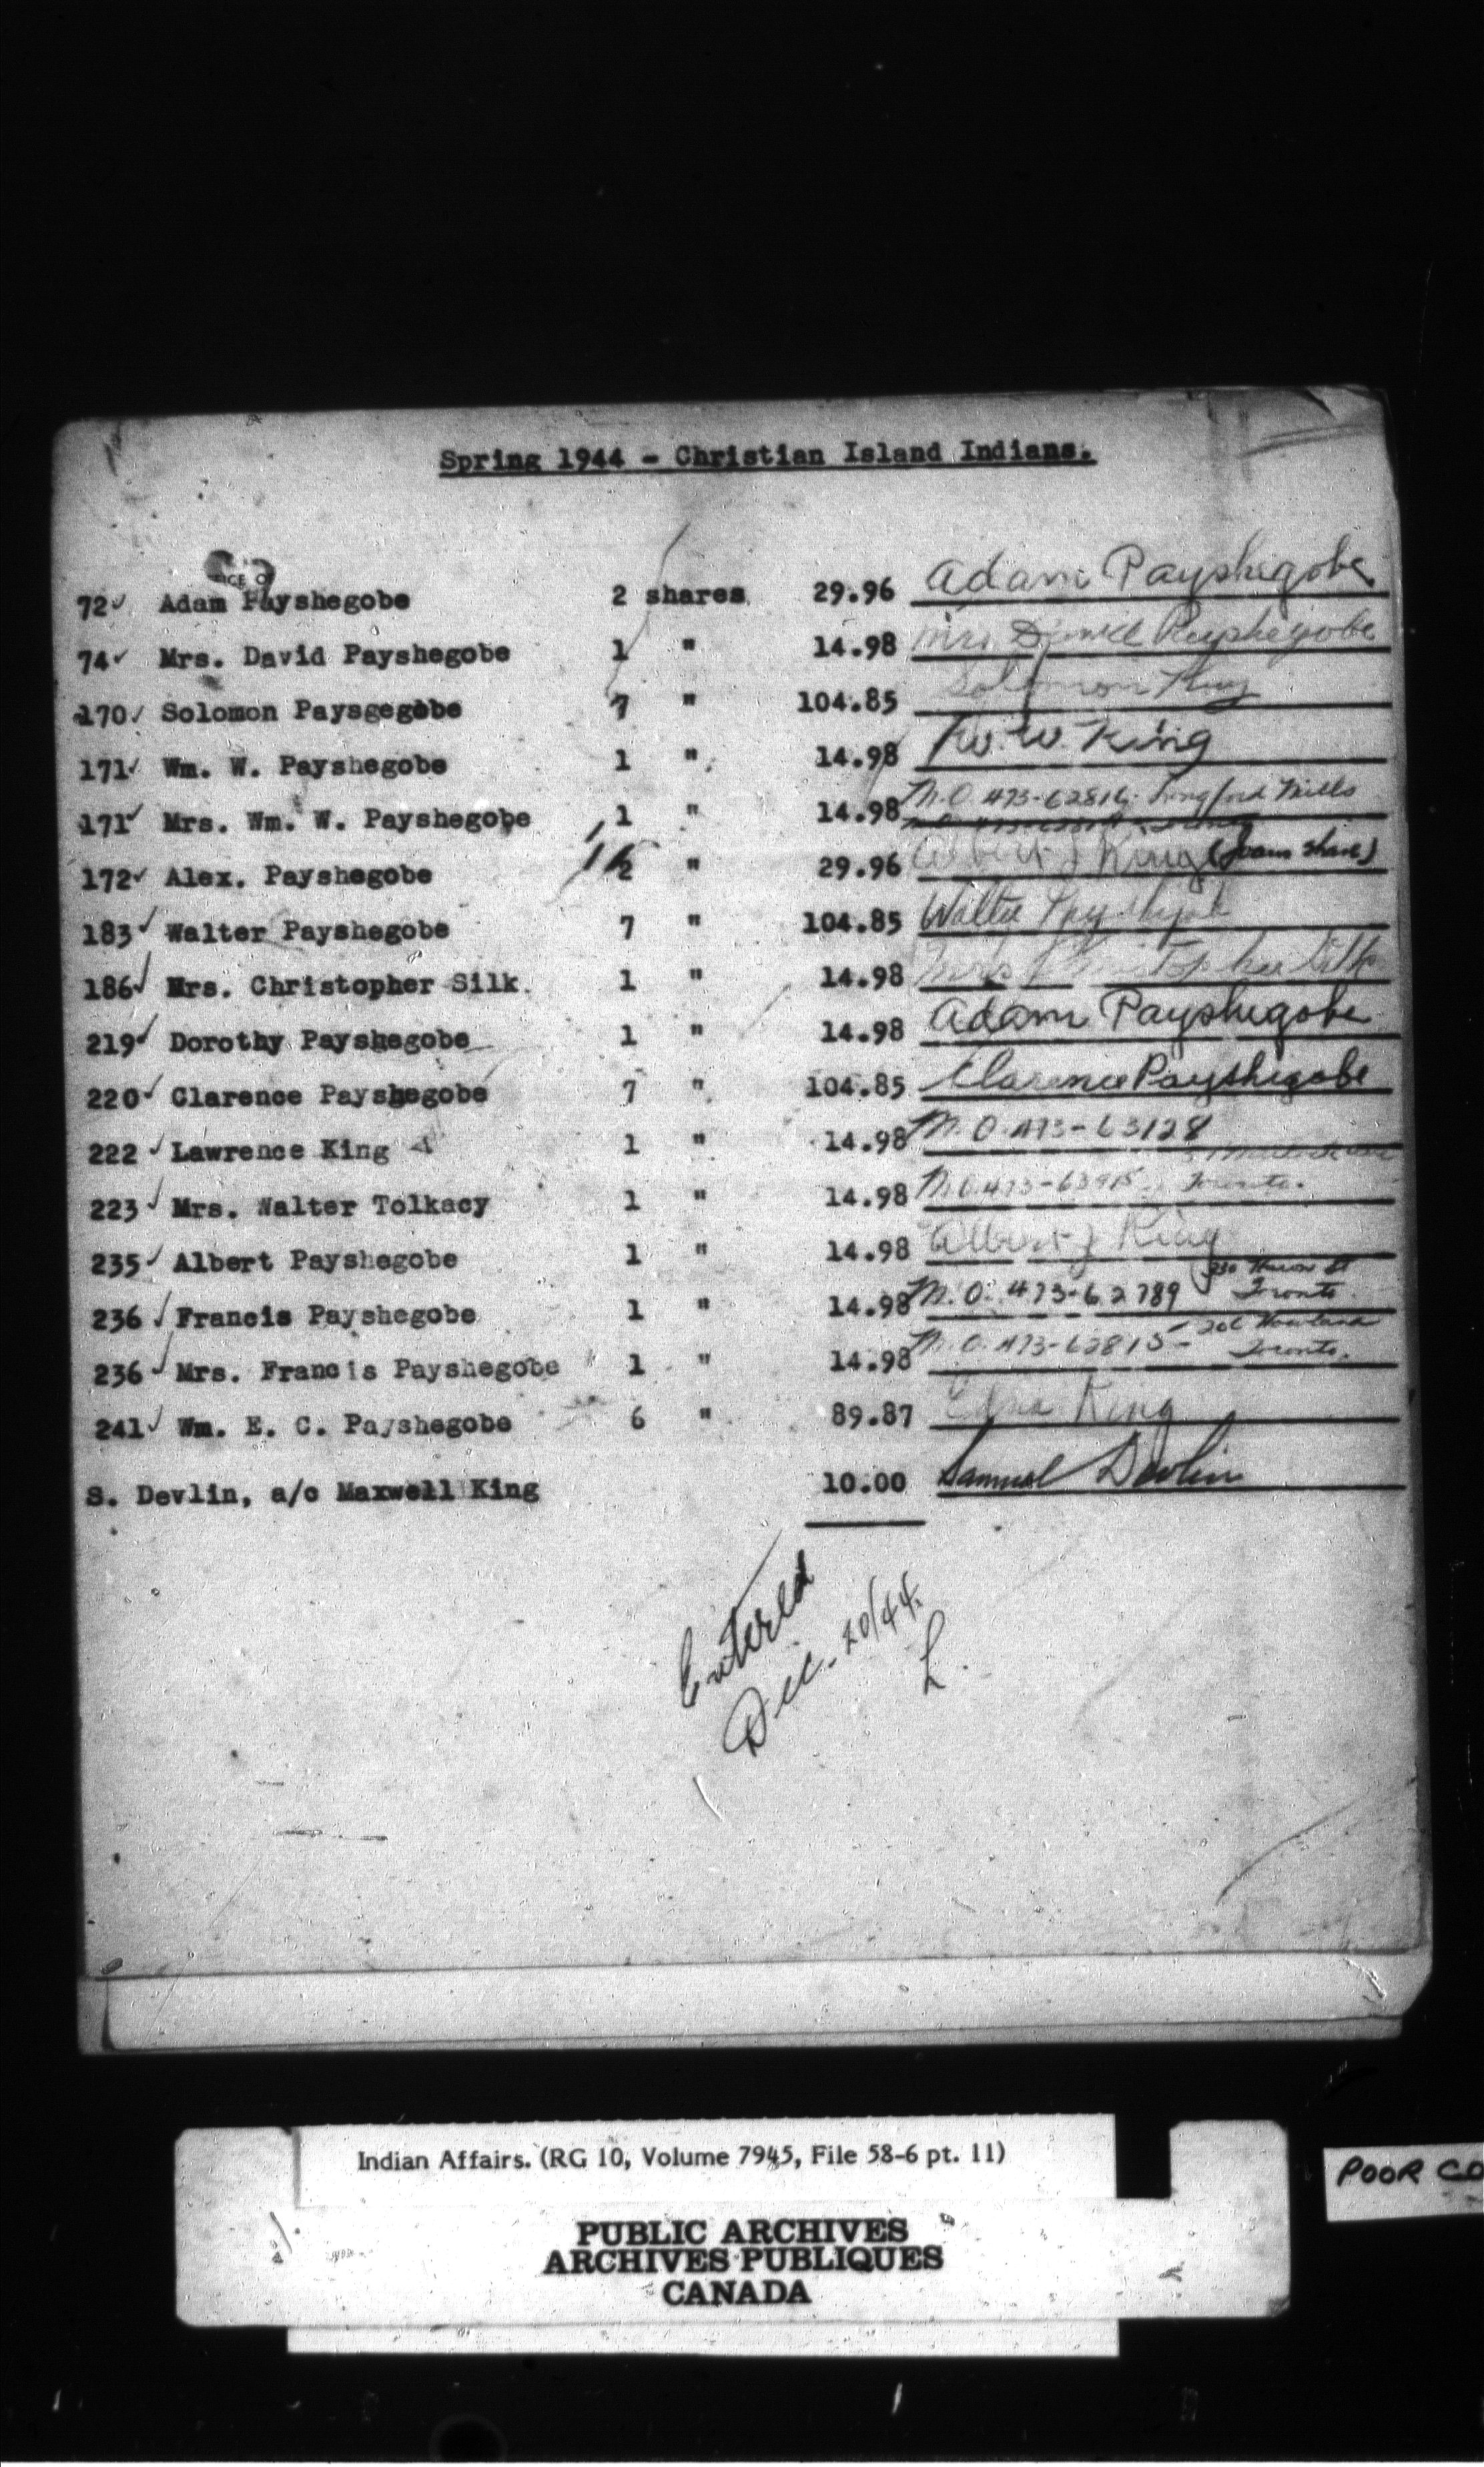 Spring 1944 - Christian Island Indians.
72 Adam Payshegobe 2 shares 29.96 Adam Payshegobe
74 Mrs. David Payshegobe 1 " 14.98 Mrs David Payshegobe
170 Solomon Paysgegobe 7 " 104.85 Solomon King
171 Wm. W. Payshegobe 1 " 14.98 W. W. King
171 Mrs. Wm. W. Payshegobe 1 " 14.98 M.O. 473-62816 Longford Mills
172 Alex. Payshegobe 2 " 29.96 Albert J King (Joans share)
183 Walter Payshegobe 7 " 104.85 Walter
186 Mrs. Christopher Silk. 1 " 14.98 Mrs Christopher Silk
219 Dorothy Payshegobe 1 " 14.98 Adam Payshegobe
220 Clarence Payshegobe 7 " 104.85 Clarence Payshegobe
222 Lawrence King 1 " 14.98 M.O. 473-63128
223 Mrs. Walter Tolkacy 1 " 14.98 M.O. 473- Toronto.
235 Albert Payshegobe 1 " 14.98 Albert J King
236 Francis Payshegobe 1 " 14.98 M.O. 473-62789 230 Huron St Toronto.
236 Mrs. Francis Payshegobe 1 " 14.98 M.O. 473-62815- Toronto.
241 Wm. E. C. Payshegobe 6 " 89.87 Edna King
S. Devlin, a/c Maxwell King 10.00 Samuel Devlin
Entered
Dec. 20/44.
L.
Indian Affairs. (RG 10, Volume 7945, File 58-6 pt. 11)
POOR CO
PUBLIC ARCHIVES
ARCHIVES PUBLIQUES
CANADA